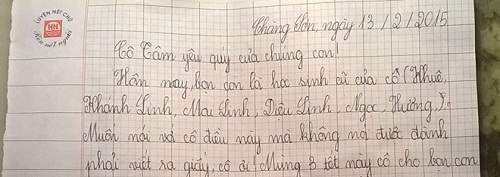 LUYỆN NÉT CHỮ
RÈN NẾT NGƯỜI
Tràng Tôn, ngày 13 / 2 / 2015
Cô Tâm yêu quý của chúng con!
Hôm nay, bọn con là học sinh cũ của cô (Khuê,
Khánh Linh, Mai Linh, Diệu Linh, Ngọc, Hường,).
Muốn nói với cô điều này mà không nói được đành
phải viết ra giấy, cô ơi! Mùng 3 tết này cô cho bọn con